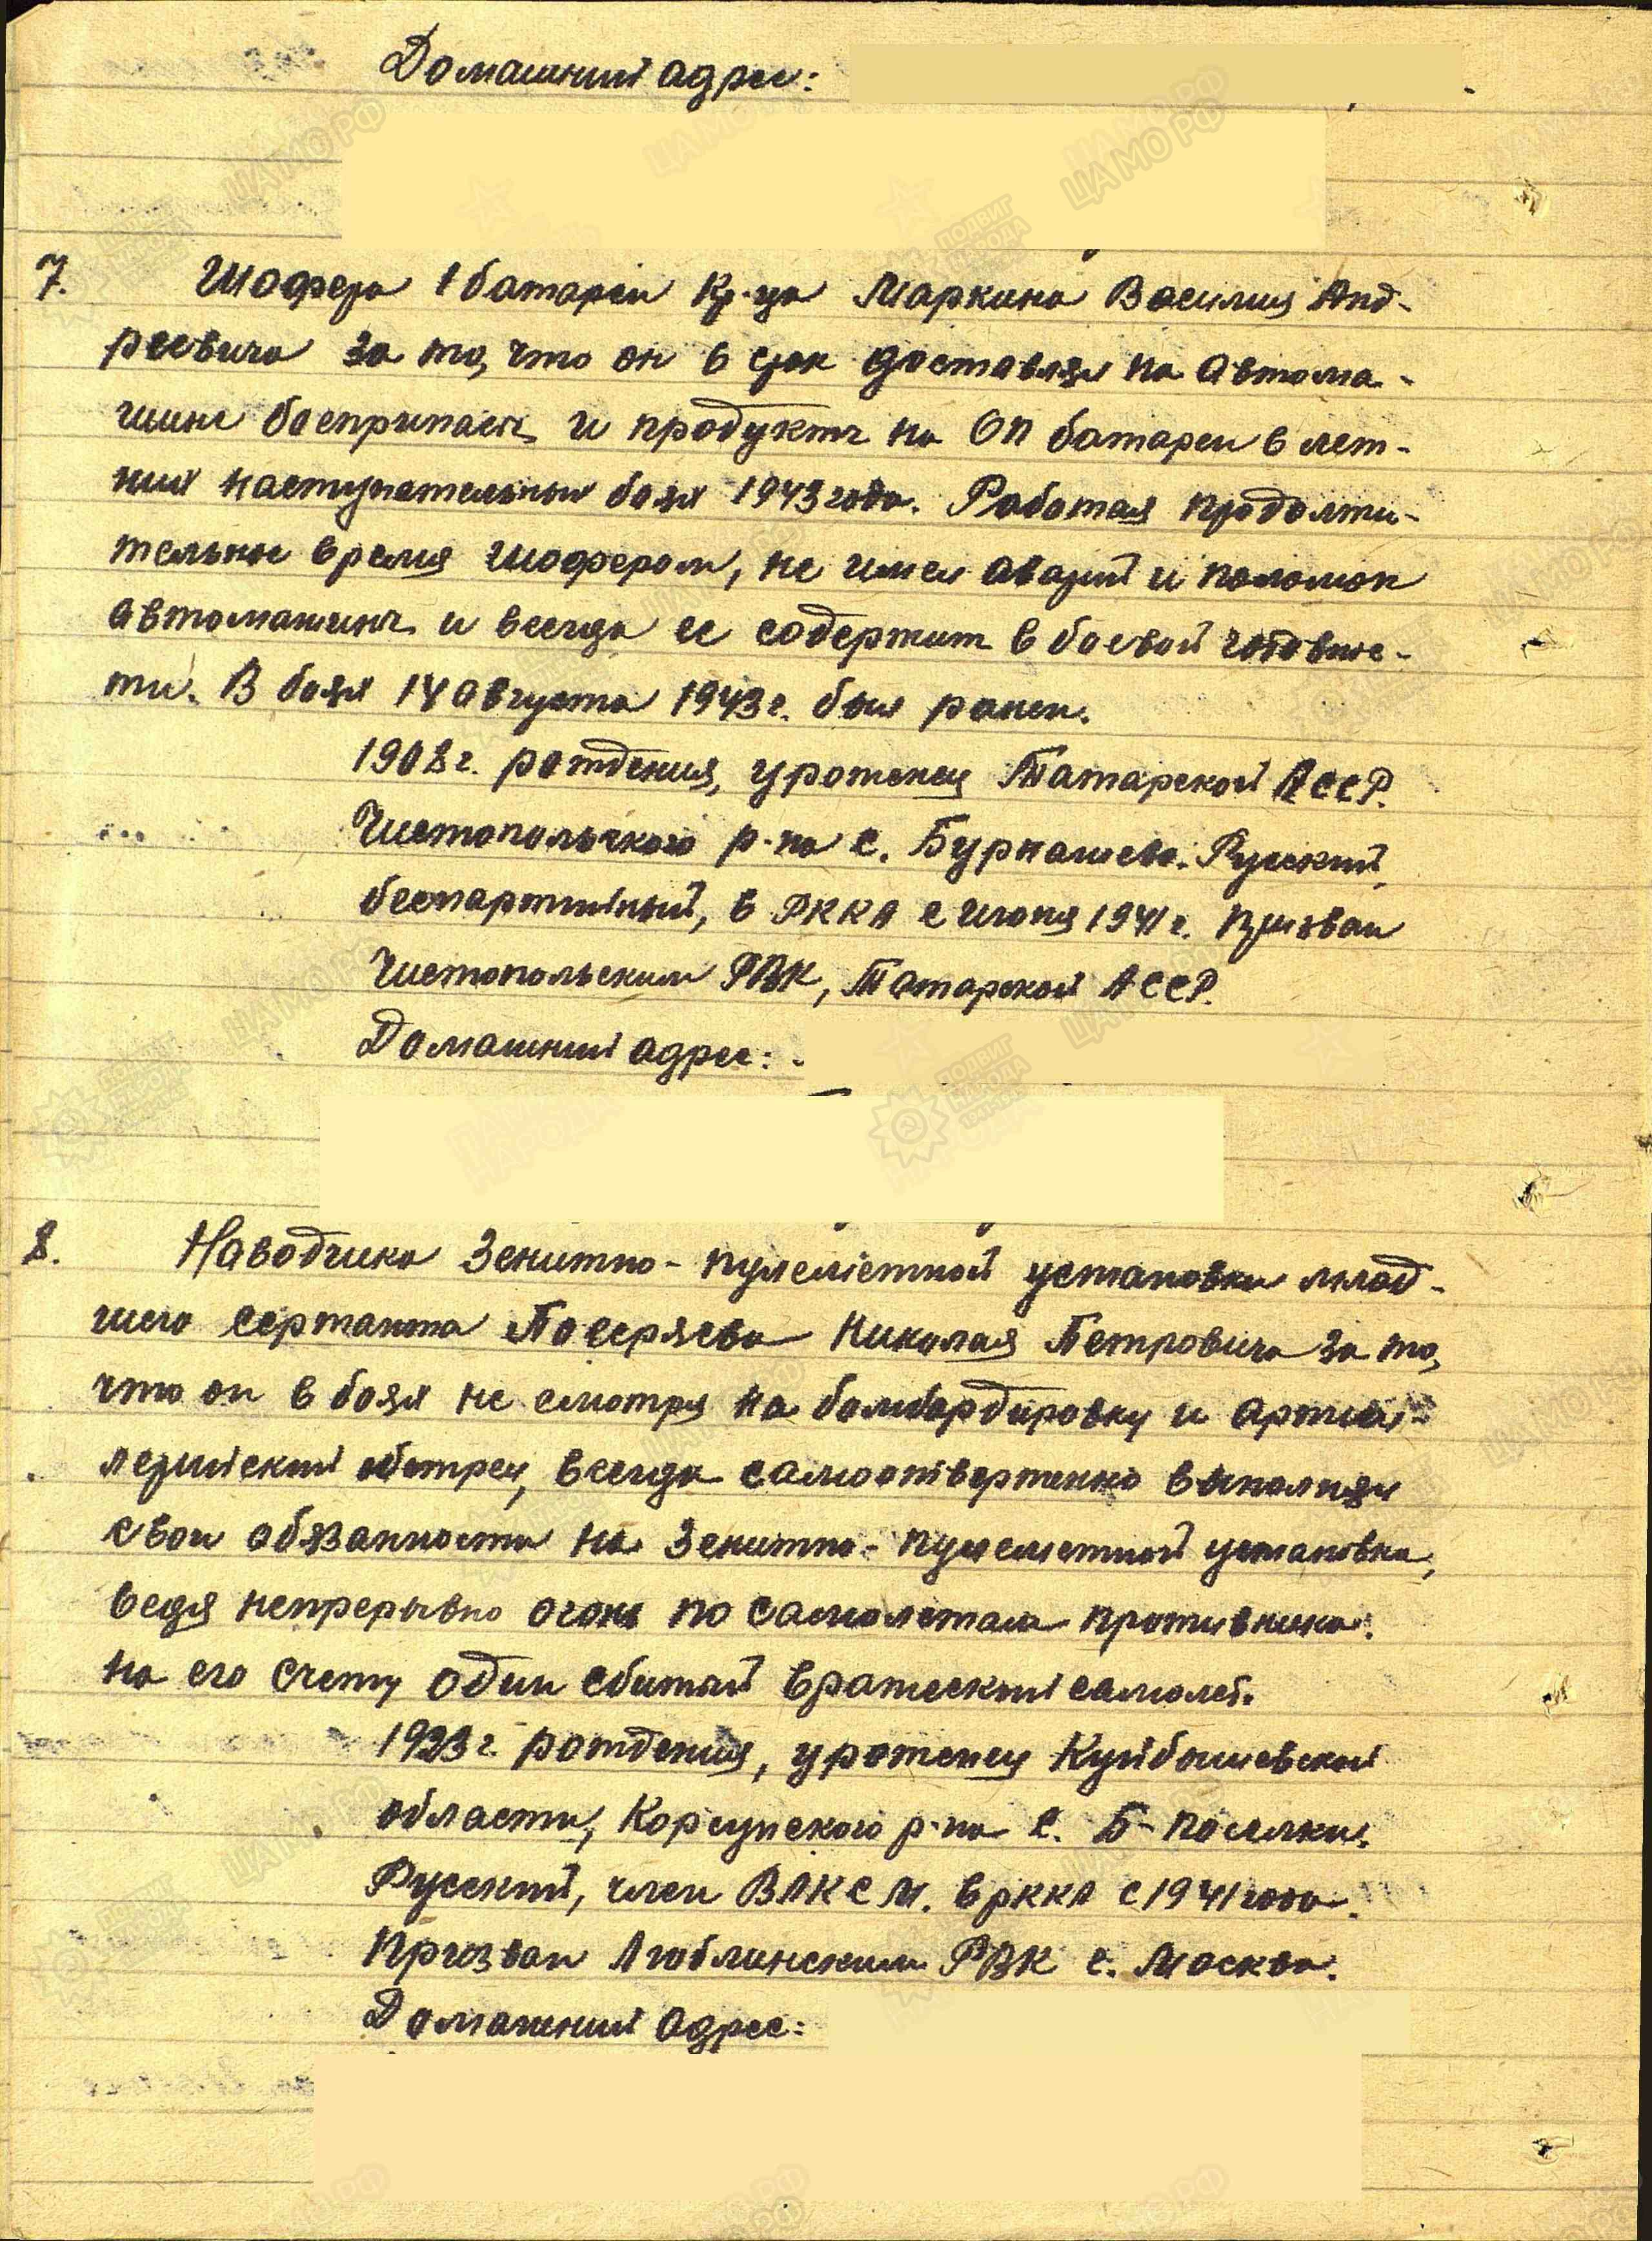 Домашний адрес:
7. Шофера 1 батареи Кр-ца Маркина Василия Анд-
реевича за то, что он в срок доставлял на автома-
шине боеприпасы и продукты на ОП батареи в лет-
них наступательных боях 1943 года. Работая продолжи-
тельное время шофером, не имел аварий и поломок
автомашины и всегда ее содержит в боевой готовнос-
ти. В боях 14 августа 1943 г. был ранен.
1908 г. рождения, уроженец Татарской АССР.
Чистопольского р-на с. Бурнашево. Русский,
беспартийный, в РККА с июня 1941 г. Призван
Чистопольским РВК, Татарской АССР.
Домашний адрес:
8. Наводчика Зенитно-пулеметной установки млад-
шего сержанта Посеряева Николая Петровича за то,
что он в боях не смотря на бомбардировку и артил-
лерийский обстрел, всегда самоотверженно выполнял
свои обязанности на Зенитно-пулеметной установке,
ведя непрерывно огонь по самолетам противника.
на его счету один сбитый вражеский самолет.
1923 г. рождения, уроженец Куйбышевской
области, Корсунского р-на с. Б-Поселки.
Русский, член ВЛКСМ. в РККА с 1941 года.
Призван Люблинским РВК г. Москва.
Домашний адрес:
ЦАМО РФ
ПОДВИГ НАРОДА
ПАМЯТЬ НАРОДА